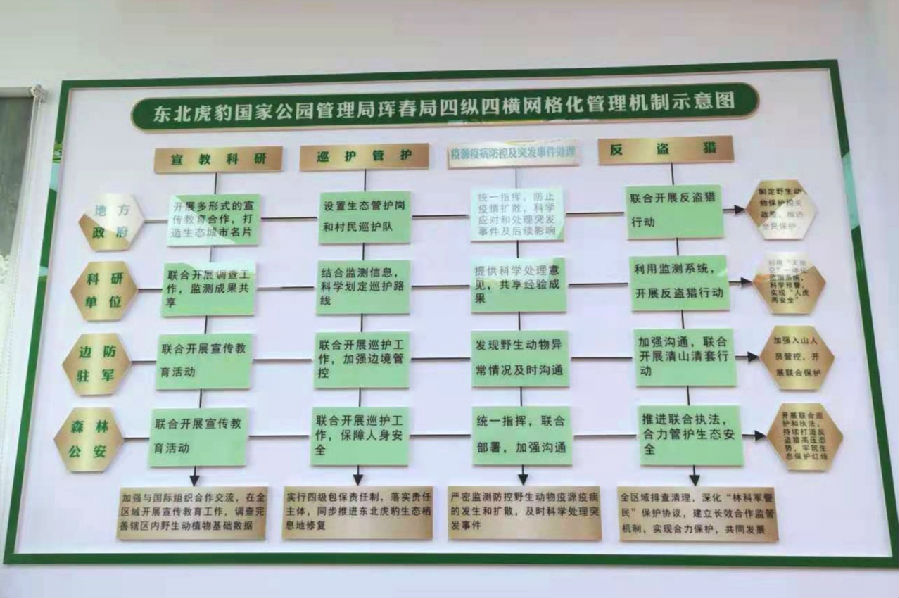 东北虎豹国家公园管理局珲春局四纵四横网格化管理机制示意图
宣教科研
巡护管护
疫源疫病防控及突发事件处理
反盗猎
地方
政府
开展多形式的宣
传教育合作，打
造生态城市名片
设置生态管护岗
和村民巡护队
统一指挥，防止
疫情扩散，科学
应对和处理突发
事件及后续影响
联合开展反盗猎
行动
制定野生动
物保护相关
科研
单位
联合开展调查工
作，监测成果共
享
结合监测信息，
科学划定巡护路
线
提供科学处理意
见，共享经验成
果
利用监测系统，
开展反盗猎行动
科学预警，
实现“人虎
两安全”
边防
驻军
联合开展宣传教
育活动
联合开展巡护工
作，加强边境管
控
发现野生动物异
常情况及时沟通
加强沟通，联合
开展清山清套行
动
加强入山人
员管控，开
展联合保护
森林
公安
联合开展宣传教
育活动
联合开展巡护工
作，保障人身安
全
统一指挥，联合
部署，加强沟通
推进联合执法，
合力管护生态安
全
开展联合巡
护和执法，
持续打造反
盗猎高压态
势，牢筑生
态保护红线
加强与国际组织合作交流，在全
区域开展宣传教育工作，调查完
善辖区内野生动植物基础数据
实行四级包保责任制，落实责任
主体，同步推进东北虎豹生态栖
息地修复
严密监测防控野生动物疫源疫病
的发生和扩散，及时科学处理突
发事件
全区域排查清理，深化“林科军管
民”保护协议，建立长效合作监管
机制，实现合力保护，共同发展